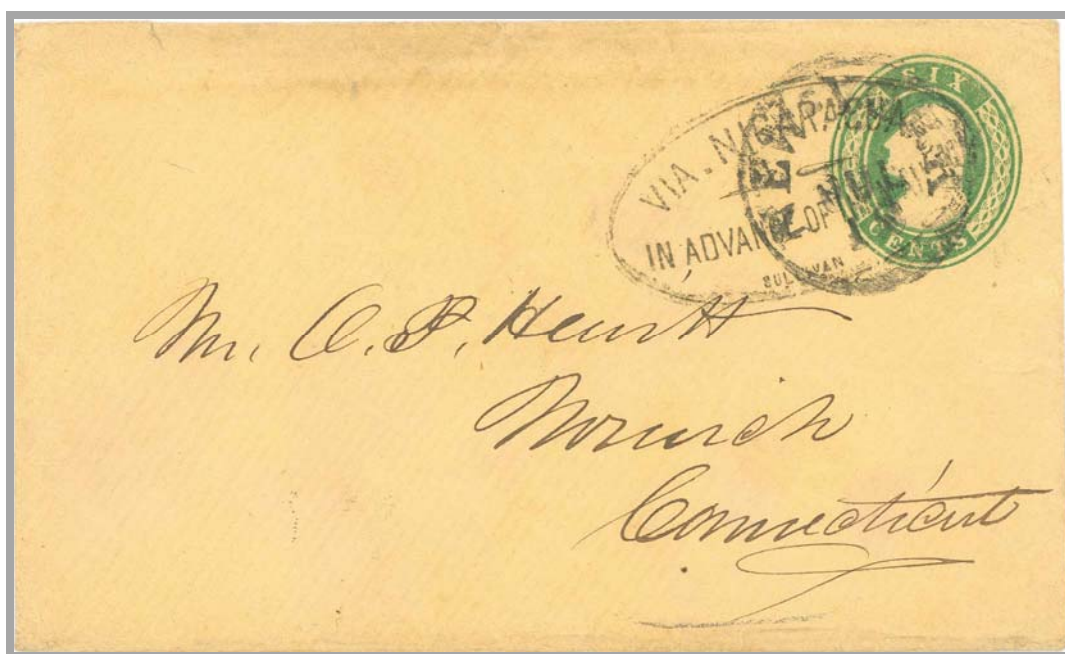 SIX
CENTS
VIA. NICARAGUA
IN ADVANCE OF THE MAILS
SULLIVAN
NEW
Mr. O. P. Hewitt
Norwich
Connecticut